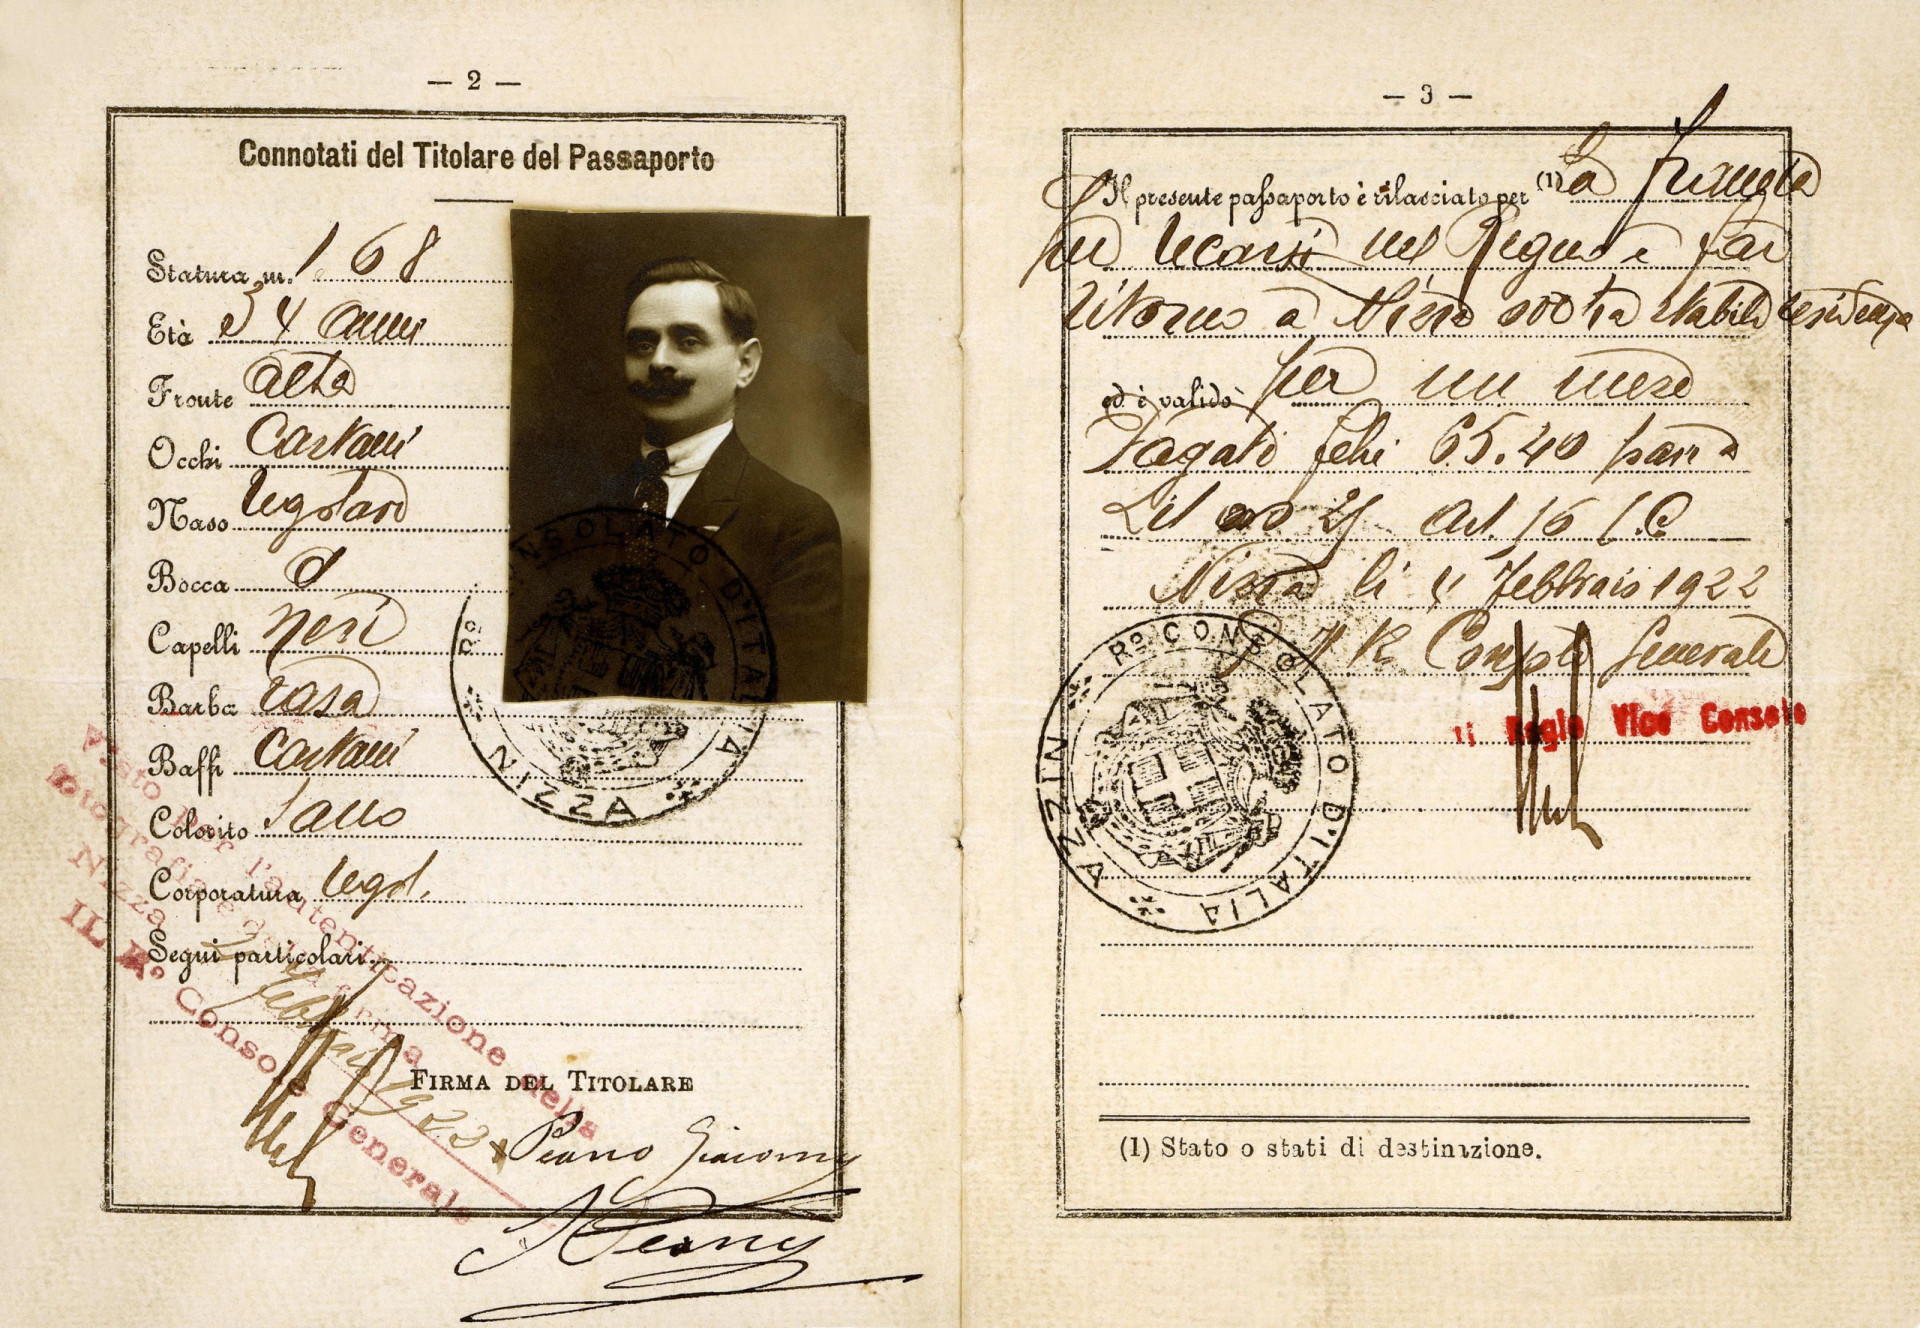 — 2 —
Connotati del Titolare del Passaporto
Statura m. 1.68
Età 34 anni
Fronte alta
Occhi Castani
Naso regolare
Bocca d
Capelli neri
Barba rasa
Baffi Castani
Colorito Sano
Corporatura regol.
Segni particolari
Visto per l'autenticazione della
fotografia e della firma
Nizza
IL R° Console Generale
Febbraio 1922
FIRMA DEL TITOLARE
Peano Giacomo
R° CONSOLATO D'ITALIA
NIZZA
— 3 —
Il presente passaporto è rilasciato per (1) La Francia
per recarsi nel Regno e far
ritorno a Nizza stabile residenza
ed è valido per un mese
Pagati 65.40 pari a
Art. 16
Nizza li 4 Febbraio 1922
Il R Console Generale
Il Regio Vice Console
R° CONSOLATO D'ITALIA
NIZZA
(1) Stato o stati di destinazione.